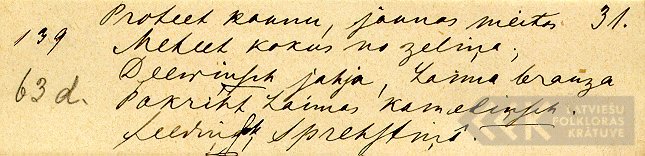 Proteet kaunu, jaunas meitas 31.
139 Meheet kokus no zeliņa;
Deewinsch jahja, Laima brauza
63 d. Pakriht Laimas kamolinsch.
Seedinsch, Sprehstiņš.
LATVIEŠU
FOLKLORAS
KRĀTUVE